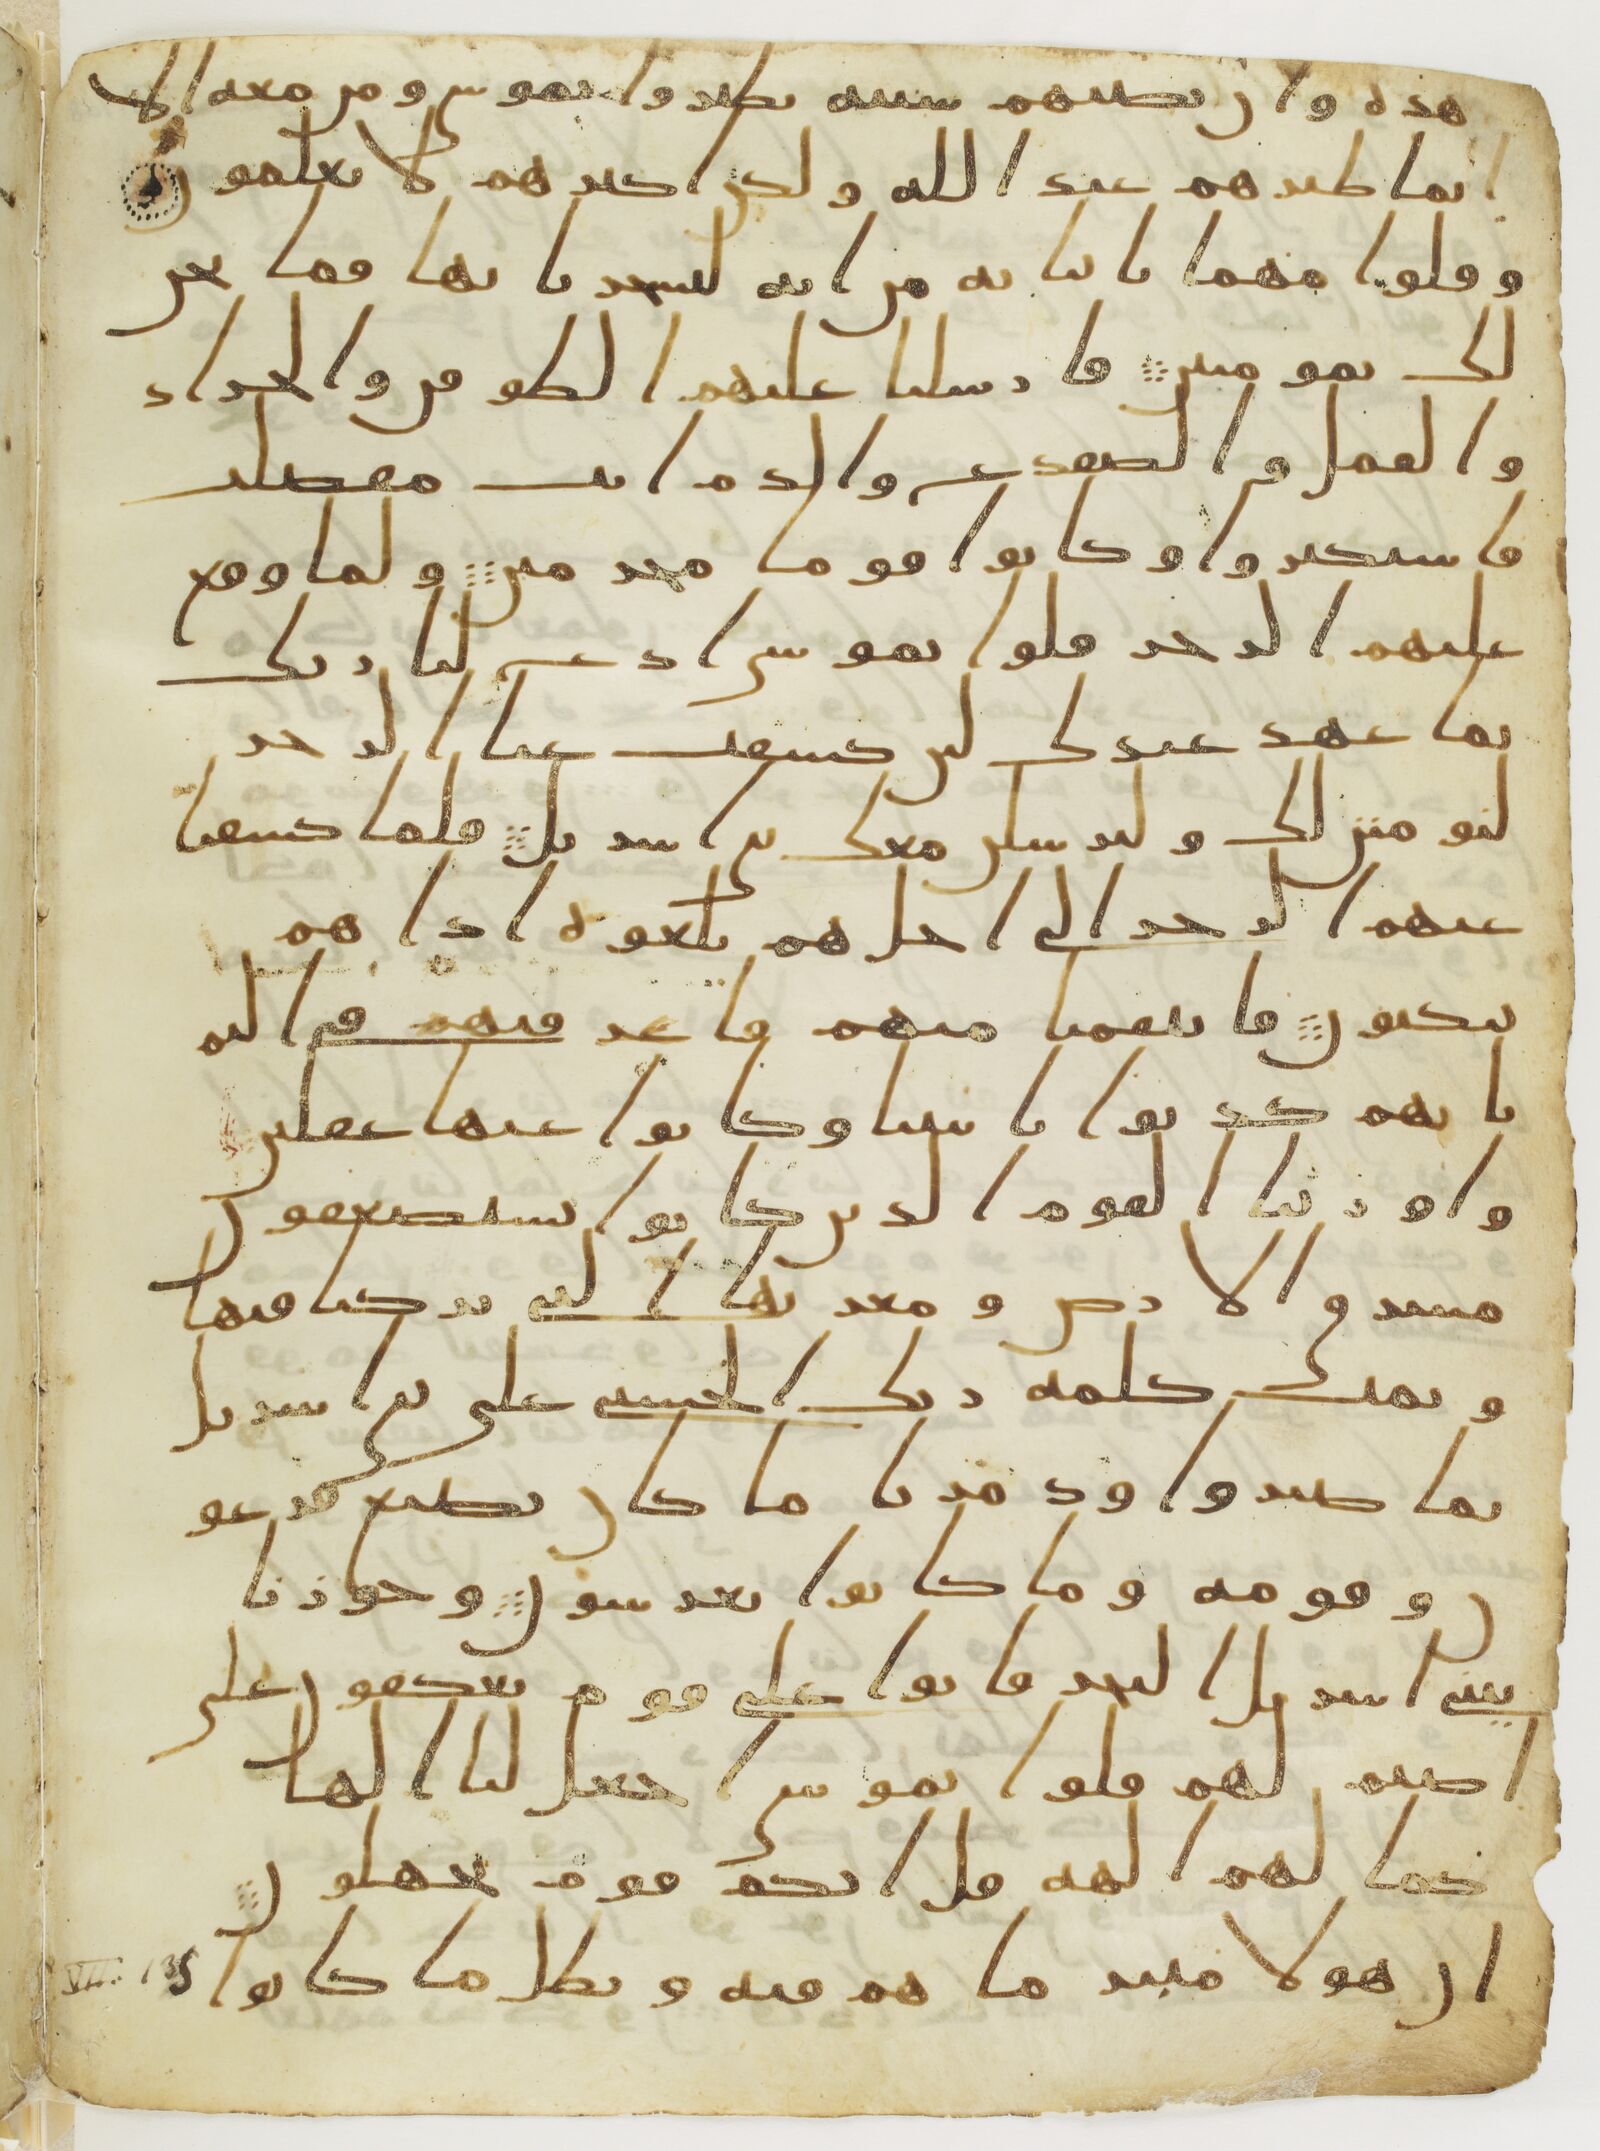 هذه وان تصبهم سيئه يطيروا بموسى ومن معه الا
انما طيرهم عند الله ولكن اكثرهم لا يعلمون
وقلوا مهما تاتنا به من ايه لتسحرنا بها فما نحن
لك بمومنين فارسلنا عليهم الطوفن والجراد
والقمل والضفدع والدم ايت مفصلت
فاستكبروا وكانوا قوما مجرمين ولما وقع
عليهم الرجز قلوا يموسى ادع لنا ربك
بما عهد عندك لئن كشفت عنا الرجز
لنومنن لك ولنرسلن معك بنى اسريل فلما كشفنا
عنهم الرجز الى اجل هم بلغوه اذا هم
ينكثون فانتقمنا منهم فاغرقنهم فى اليم
بانهم كذبوا بايتنا وكانوا عنها غفلين
واورثنا القوم الذين كانوا يستضعفون
مشرق الارض ومغربها التى بركنا فيها
وتمت كلمه ربك الحسنى على بنى اسريل
بما صبروا ودمرنا ما كان يصنع فرعو
ن وقومه وما كانوا يعرشون وجوزنا
ببنى اسريل البحر فاتوا على قوم يعكفون على
اصنم لهم قلوا يموسى اجعل لنا الها
كما لهم الهه قل انكم قوم تجهلون
ان هولا متبر ما هم فيه وبطل ما كانوا
VII. 135